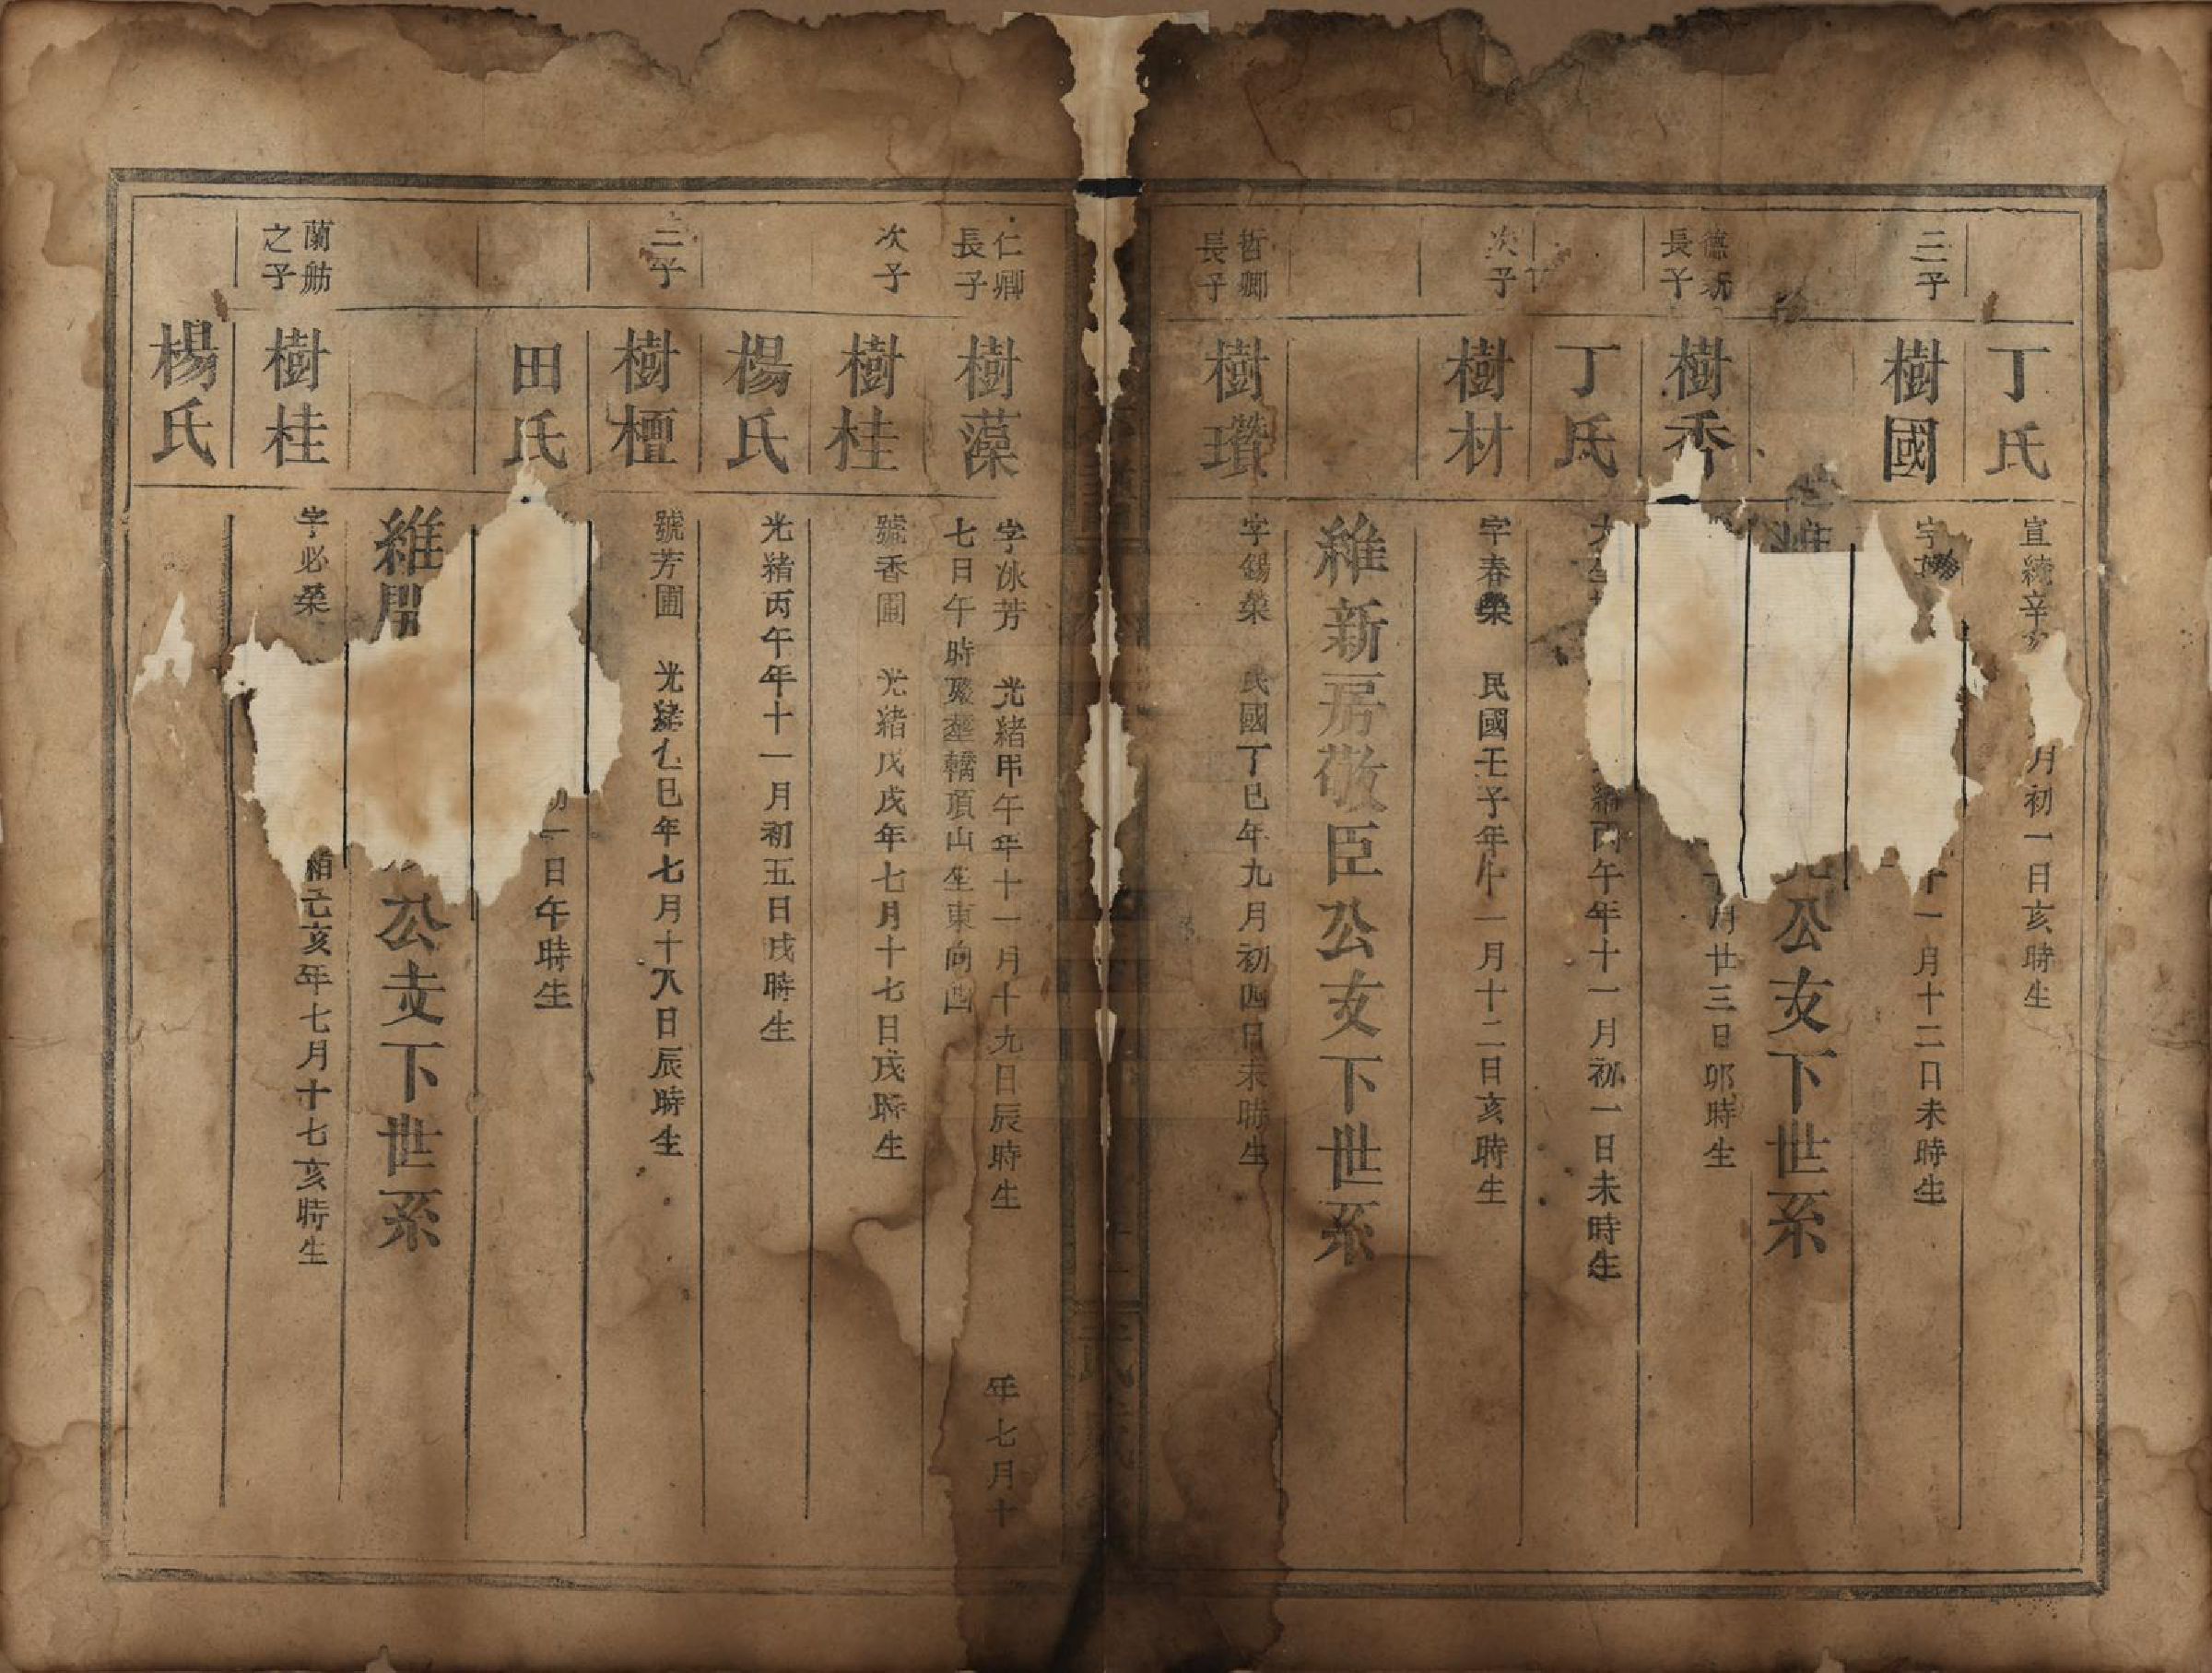 丁氏
宣統辛
月初一日亥時生
三子
樹國
字
十一月十二日未時生
公支下世系
德新
長子
樹香
月廿三日卯時生
丁氏
大
緒丙午年十一月初一日未時生
次子
樹材
字春榮 民國壬子年十一月十二日亥時生
維新房敬臣公支下世系
哲卿
長子
樹瓚
字錫榮 民國丁巳年九月初四日未時生
仁卿
長子
樹藻
字泳芳 光緒甲午年十一月十九日辰時生 年七月十
七日午時歿塟轎頂山坐東向西
次子
樹桂
號香圃 光緒戊戌年七月十七日戌時生
楊氏
光緒丙午年十一月初五日戌時生
三子
樹檀
號芳圃 光緒乙巳年七月十八日辰時生
田氏
初一日午時生
維
公支下世系
蘭舫
之子
樹桂
字必榮
緒己亥年七月十七亥時生
楊氏